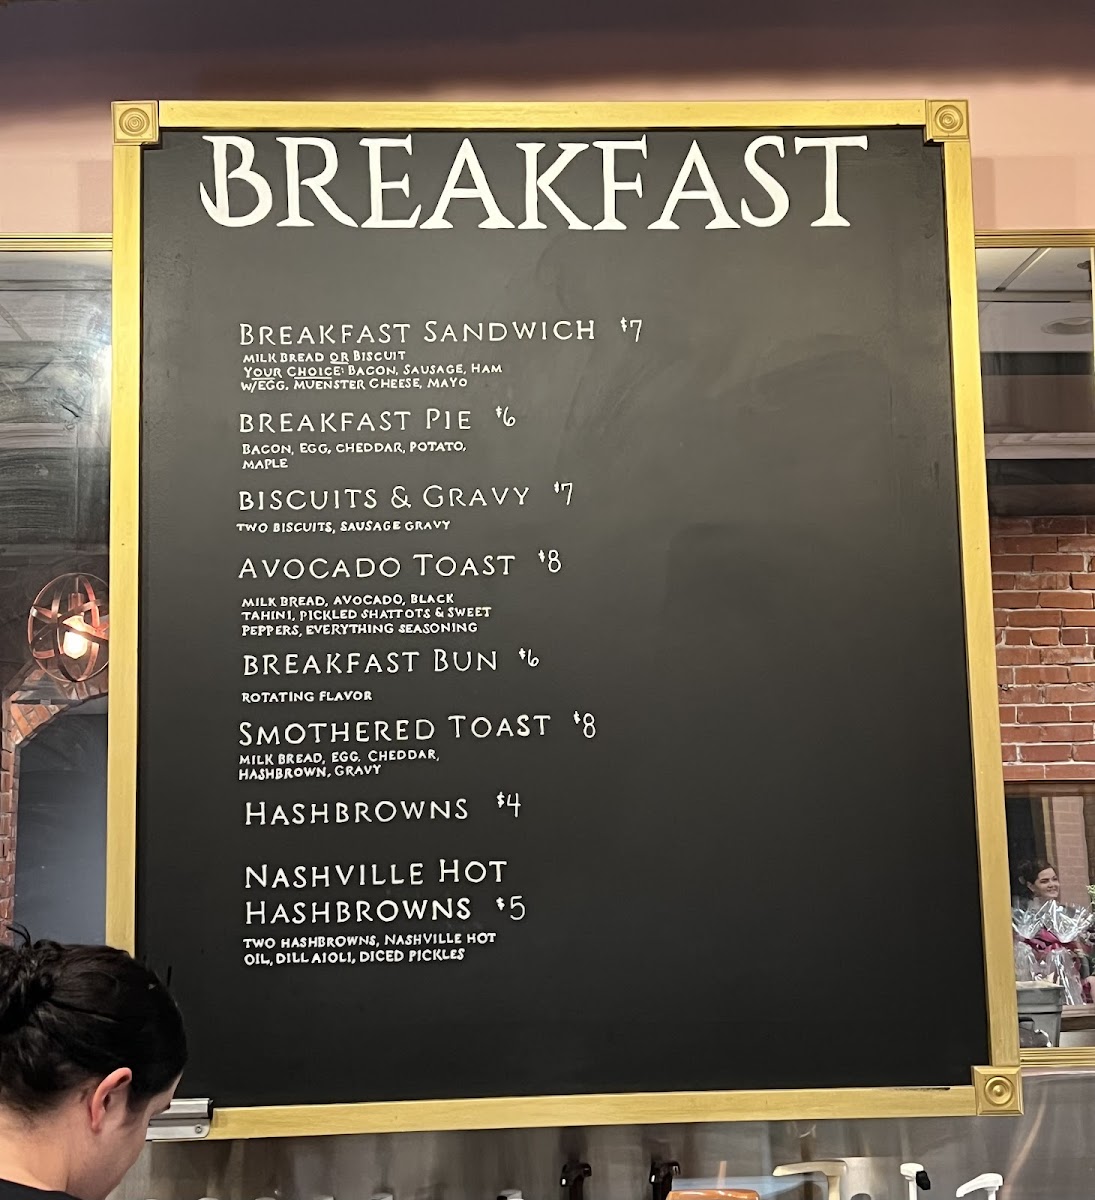 BREAKFAST
BREAKFAST SANDWICH $7
MILK BREAD OR BISCUIT
YOUR CHOICE: BACON, SAUSAGE, HAM
W/EGG, MUENSTER CHEESE, MAYO
BREAKFAST PIE $6
BACON, EGG, CHEDDAR, POTATO,
MAPLE
BISCUITS & GRAVY $7
TWO BISCUITS, SAUSAGE GRAVY
AVOCADO TOAST $8
MILK BREAD, AVOCADO, BLACK
TAHINI, PICKLED SHATTOTS & SWEET
PEPPERS, EVERYTHING SEASONING
BREAKFAST BUN $6
ROTATING FLAVOR
SMOTHERED TOAST $8
MILK BREAD, EGG, CHEDDAR,
HASHBROWN, GRAVY
HASHBROWNS $4
NASHVILLE HOT
HASHBROWNS $5
TWO HASHBROWNS, NASHVILLE HOT
OIL, DILL AIOLI, DICED PICKLES